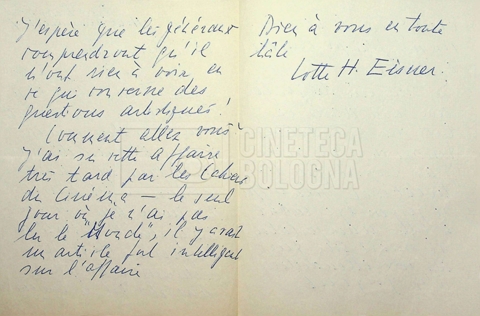 J'espère que les généraux
comprendront qu'il
n'ont rien à voir en
ce qui concerne des
questions artistiques!
Comment allez vous?
J'ai su cette affaire
très tard par les Cahiers
du Cinéma — le seul
jour où je n'ai pas
lu le "Monde", il y avait
un article fort intelligent
sur l'affaire
Bien à vous en toute
hâte
Lotte H. Eisner.
CINETECA
BOLOGNA